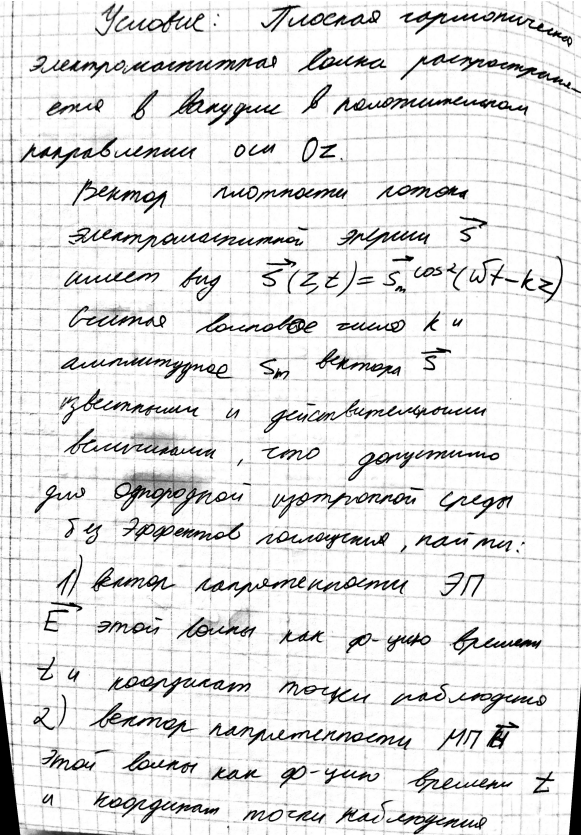 Условие: Плоская гармоническая
электромагнитная волна распростране-
ется в вакууме в положительном
направлении оси Oz.
Вектор плотности потока
электромагнитной энергии S⃗
имеет вид S⃗(z,t) = S⃗ₘ cos²(ωt-kz)
Считая волновое число k и
амплитудное Sₘ вектора S⃗
известными и действительными
величинами, что допустимо
для однородной изотропной среды
без эффектов поглощения, найти:
1) вектор напряженности ЭП
E⃗ этой волны как ф-цию времени
t и координат точки наблюдения
2) вектор напряженности МП H⃗
этой волны как ф-цию времени t
и координат точки наблюдения